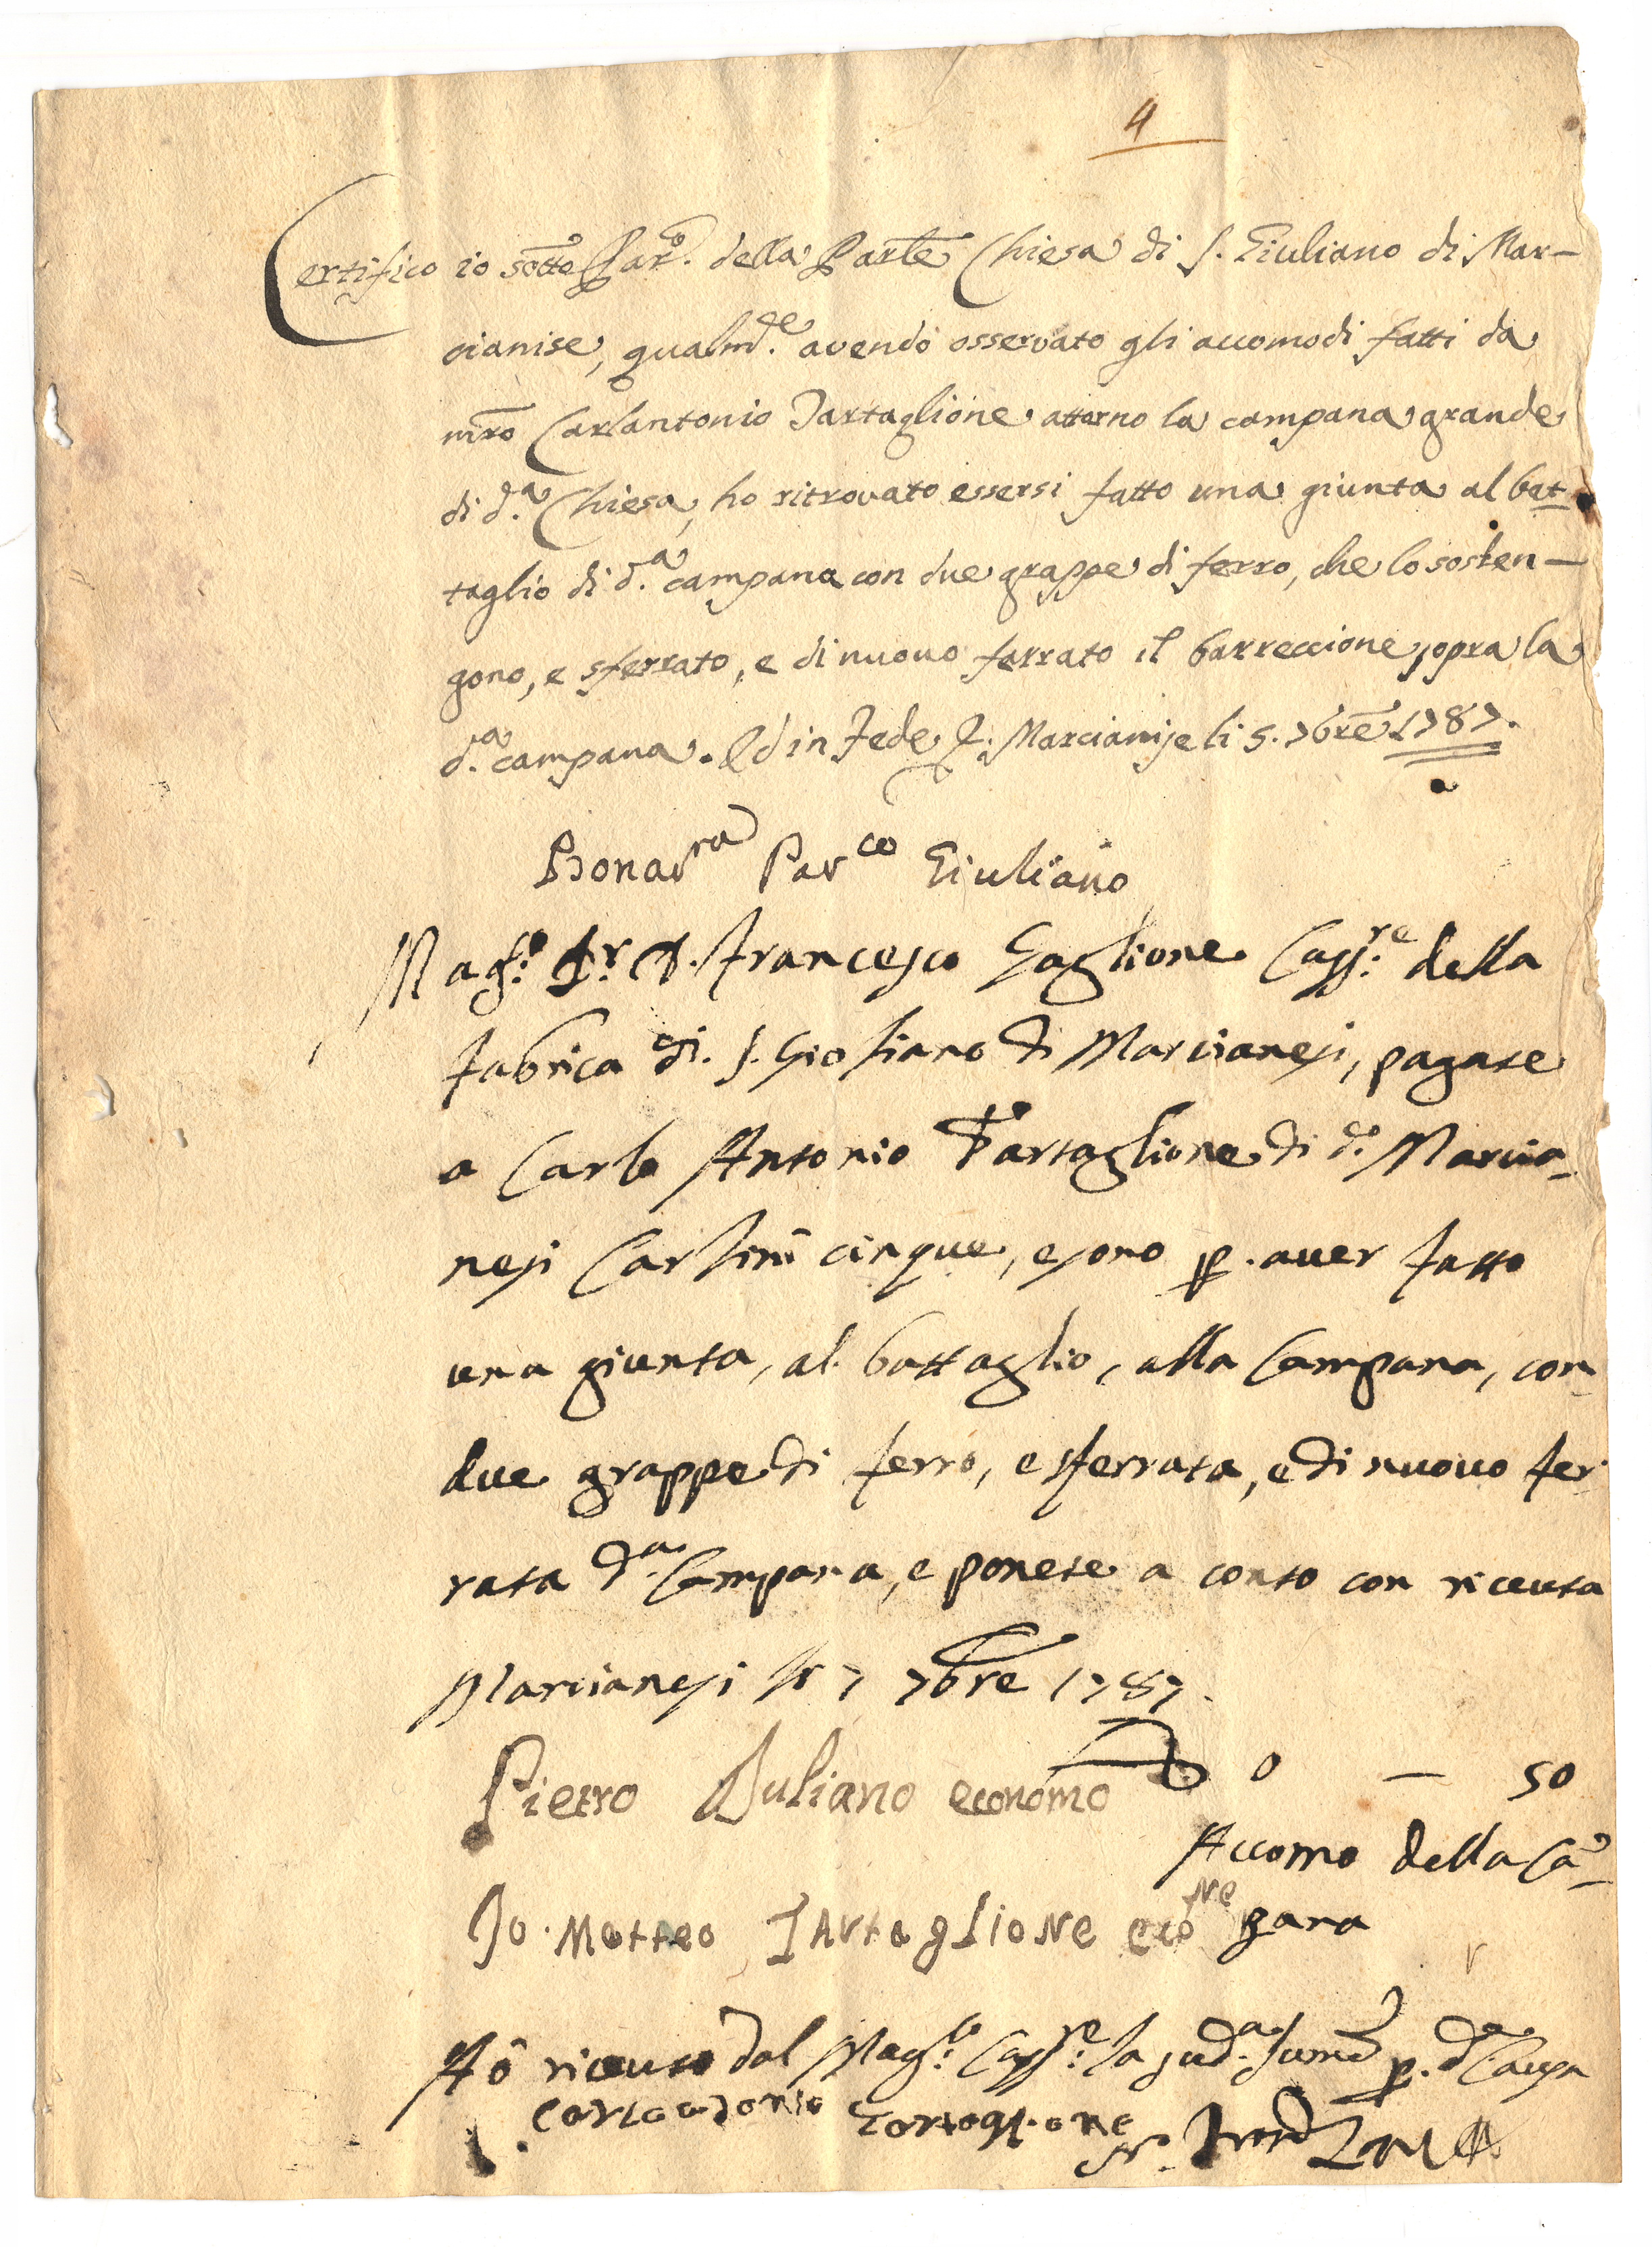 4
Certifico io sotto Par.o della Parle Chiesa di S. Giuliano di Mar-
cianise, qualm.de avendo osservato gli accomodi fatti da
mro Carlantonio Tartaglione attorno la campana grande
di d.a Chiesa, ho ritrovato essersi fatto una giunta al bat-
taglio di d.a campana con due grappe di ferro, che lo sosten-
gono, e sferrato, e di nuovo ferrato il barreccione sopra la
d.a campana. Ed in Fede &. Marcianise li 5. 7bre 1787.
Bonav.ra Par.co Giuliano
Mag.co Dr. D. Francesco Gaglione Cass.re della
fabrica di. S. Gioliano di Marcianesi, pagate
a Carlo Antonio Tartaglione di d.o Marcia-
nesi Carlini cinque, e sono p. aver fatto
una giunta, al battaglio, alla Campana, con
due grappe di ferro, e sferrata, e di nuovo fer-
rata d.a Campana, e ponete a conto con riceuta
Marcianesi li 7 7bre 1787.
Pietro Juliano economo D 0 — 50
Accomo della Ca-
Io. Matteo Tartaglione eco.ne pana
Hò riceuto dal Mag.co Cass.re la sud.a summa p. d.a Causa
Carlo Antonio Tartaglione